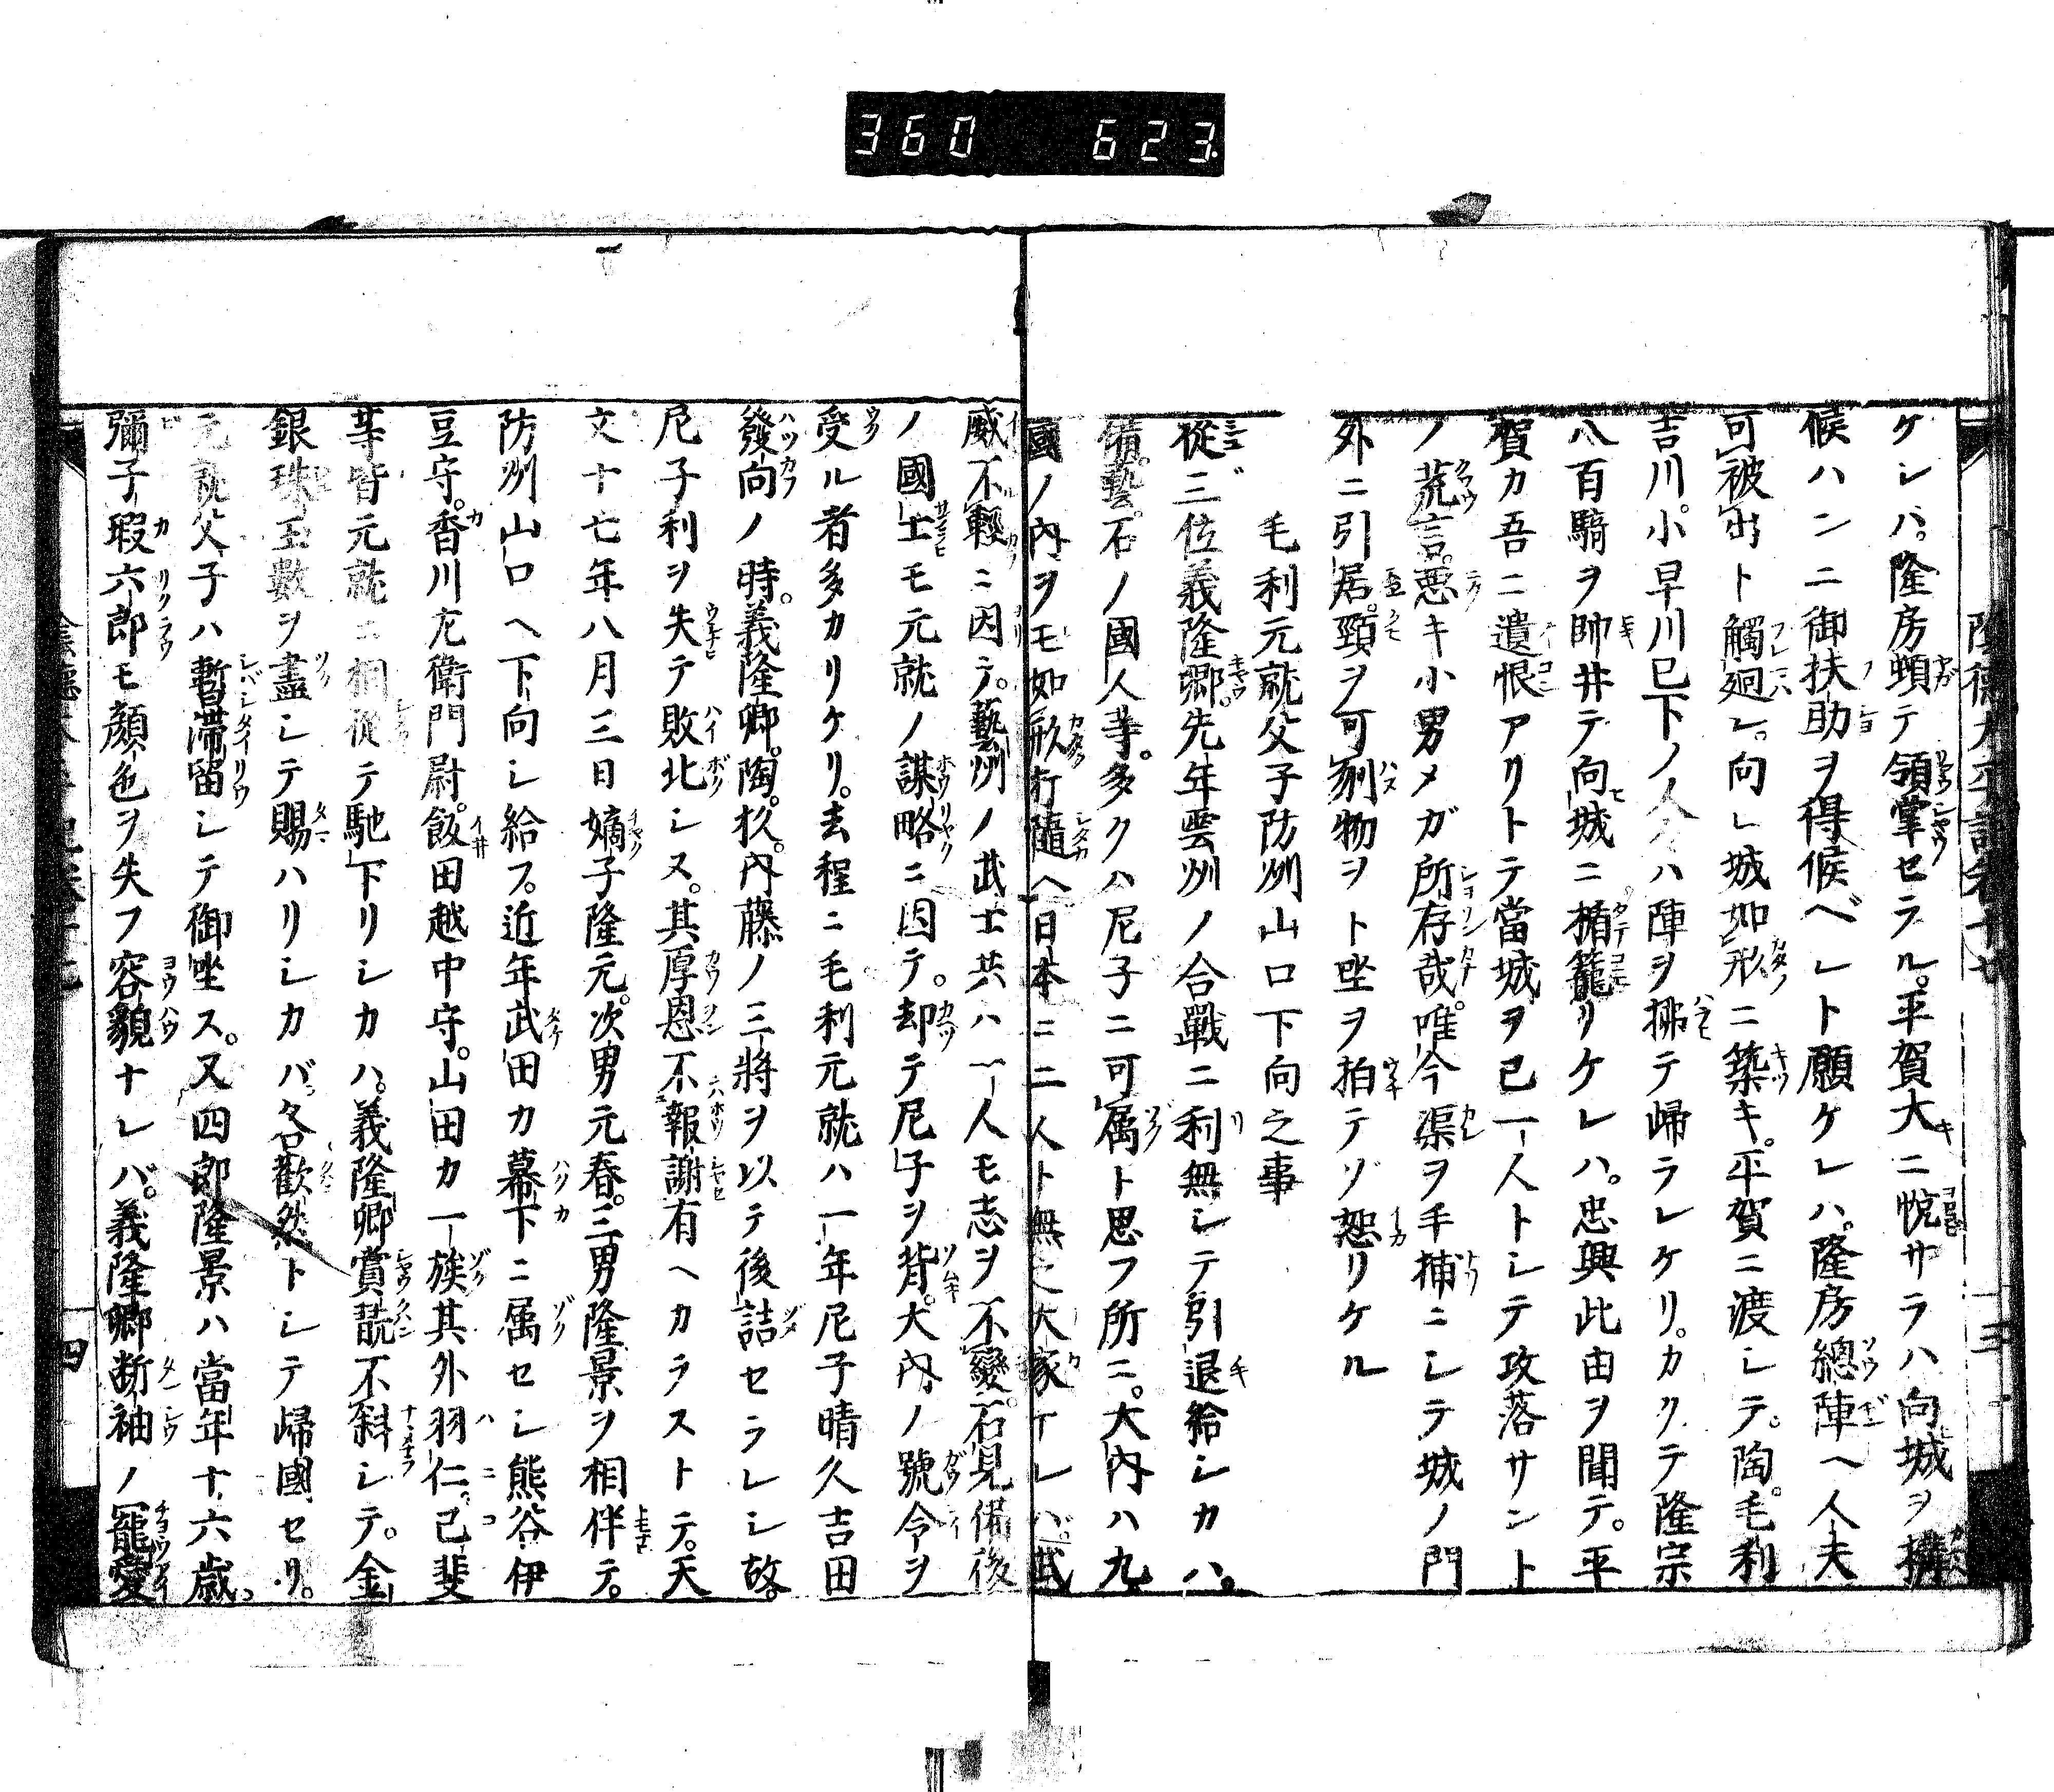 360 623
ケレバ。隆房頓テ領掌セラル。平賀大ニ悦サラハ向城ヲ構
候ハンニ御扶助ヲ得候ベレト願ケレハ。隆房總陣ヘ人夫
可被出ト觸廻レ。向レ城如形ニ築キ。平賀ニ渡レテ。陶。毛利
吉川。小早川已下ノ人々ハ陣ヲ拂テ歸ラレケリ。カクテ隆宗
八百騎ヲ帥井テ向城ニ楯籠リケレハ。忠興此由ヲ聞テ。平
賀カ吾ニ遺恨アリトテ當城ヲ已一人トレテ攻落サント
ノ荒言。悪キ小男メガ所存哉。唯今渠ヲ手捕ニレテ城ノ門
外ニ引居。頸ヲ可刎物ヲト坐ヲ拍テゾ怒リケル
毛利元就父子防州山口下向之事
從三位義隆卿。先年雲州ノ合戰ニ利無レテ引退給レカハ。
備。藝。石ノ國人等。多クハ尼子ニ可属ト思フ所ニ。大内ハ九
國ノ内ヲモ如形打隨ヘ日本ニ二人ト無大家ケレハ。武
威不輕ニ因テ。藝州ノ武士共ハ一人モ志ヲ不變。石見備後
ノ國士モ元就ノ謀略ニ因テ。却テ尼子ヲ背。大内ノ號令ヲ
受ル者多カリケリ。去程ニ毛利元就ハ一年尼子晴久吉田
發向ノ時。義隆卿。陶。杦。内藤ノ三將ヲ以テ後詰セラレシ故。
尼子利ヲ失テ敗北レヌ。其厚恩不報謝有ヘカラストテ。天
文十七年八月三日嫡子隆元。次男元春。三男隆景ヲ相伴テ。
防州山口ヘ下向レ給フ。近年武田カ幕下ニ属セレ熊谷伊
豆守。香川左衛門尉。飯田越中守。山田カ一族其外羽仁。己斐
等皆元就ニ相從テ馳下リシカハ。義隆卿賞翫不斜レテ。金
銀珠玉數ヲ盡レテ賜ハリシカバ各歡然トレテ歸國セリ。
元就父子ハ暫滯留レテ御坐ス。又四郎隆景ハ當年十六歳。
彌子瑕六郎モ顔色ヲ失フ容貌ナレバ。義隆卿断袖ノ寵愛
四